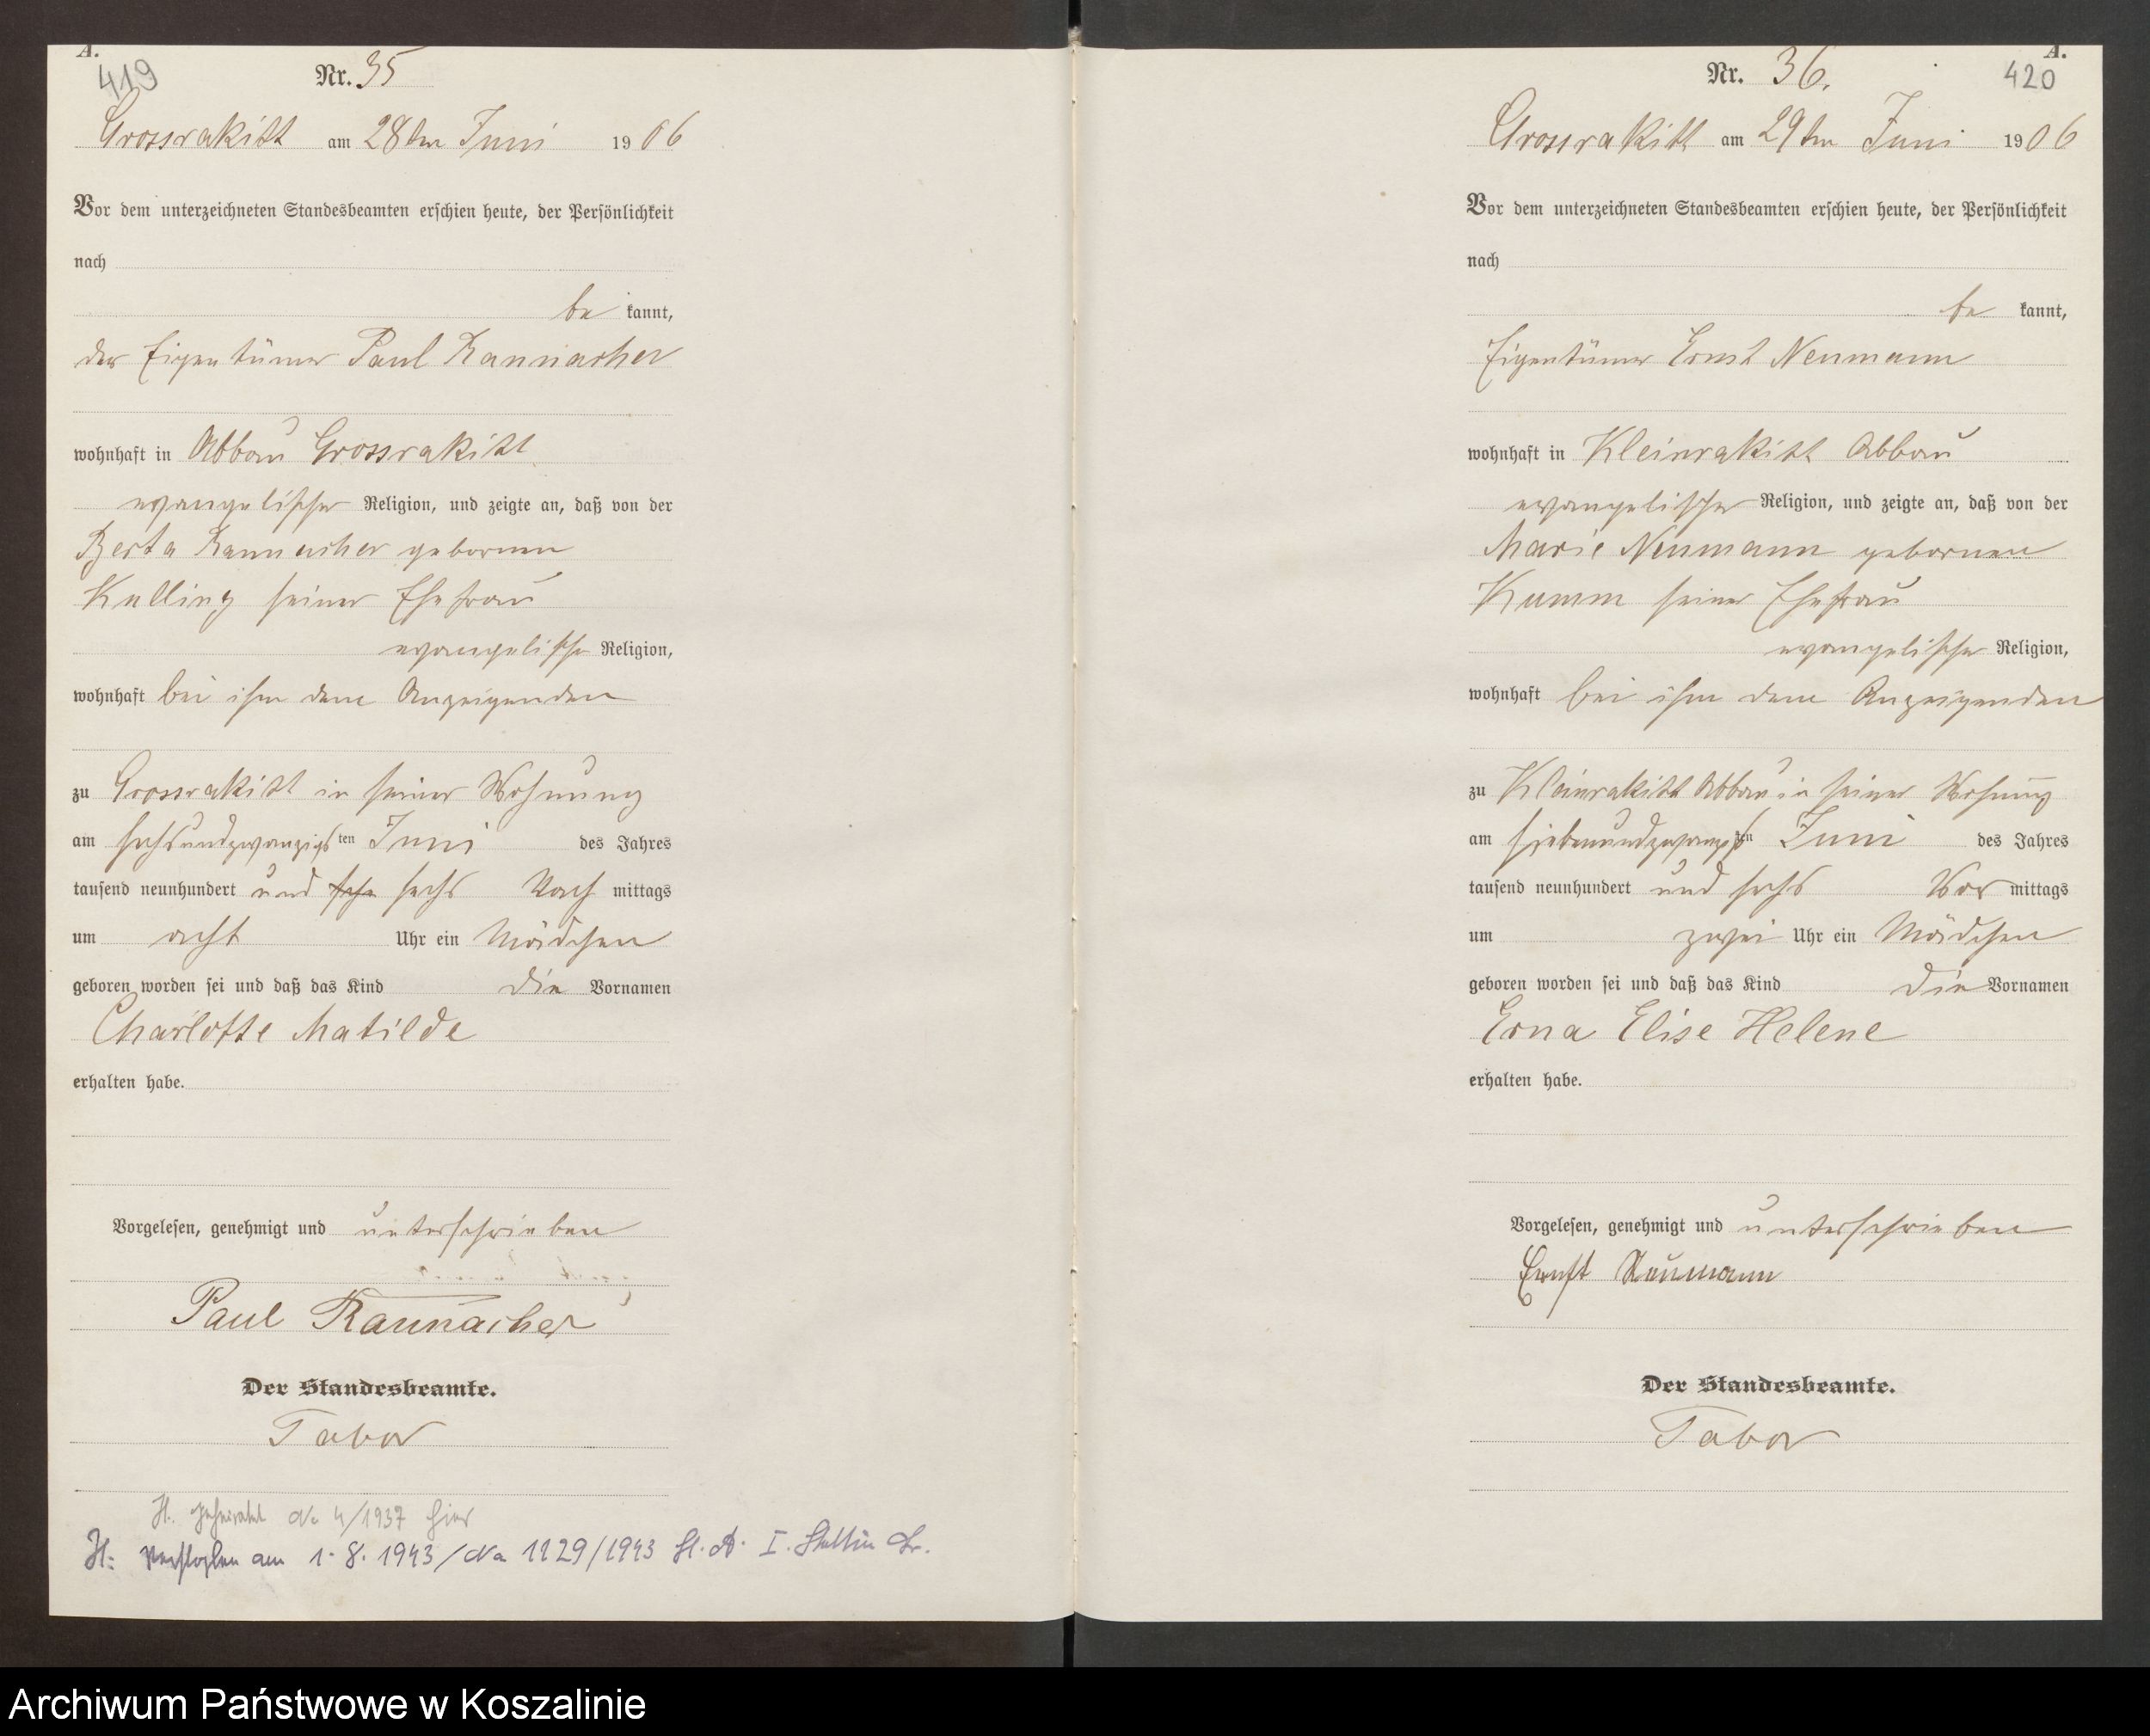 A.
419
Nr. 35
Grossrakitt am 28ten Juni 1906
Vor dem unterzeichneten Standesbeamten erschien heute, der Persönlichkeit
nach
be kannt,
der Eigentümer Paul Rannacher
wohnhaft in Abbau Grossrakitt
evangelischer Religion, und zeigte an, daß von der
Berta Rannacher gebornen
Kulling seiner Ehefrau
evangelischer Religion,
wohnhaft bei ihm dem Anzeigenden
zu Grossrakitt in seiner Wohnung
am sechsundzwanzigsten Juni des Jahres
tausend neunhundert und sechs Nach mittags
um acht Uhr ein Mädchen
geboren worden sei und daß das Kind die Vornamen
Charlotte Matilde
erhalten habe.
Vorgelesen, genehmigt und unterschrieben
Paul Rannacher
Der Standesbeamte.
Tabor
H. geheiratet No 4/1937 hier
H: verstorben am 1. 8. 1943/No 1229/1943 St. A. I. Stettin
A.
420
Nr. 36.
Grossrakitt am 29ten Juni 1906
Vor dem unterzeichneten Standesbeamten erschien heute, der Persönlichkeit
nach
be kannt,
Eigentümer Ernst Neumann
wohnhaft in Kleinrakitt Abbau
evangelischer Religion, und zeigte an, daß von der
Marie Neumann gebornen
Kumm seiner Ehefrau
evangelischer Religion,
wohnhaft bei ihm dem Anzeigenden
zu Kleinrakitt Abbau in seiner Wohnung
am siebenundzwanzigsten Juni des Jahres
tausend neunhundert und sechs Vor mittags
um zwei Uhr ein Mädchen
geboren worden sei und daß das Kind die Vornamen
Erna Elise Helene
erhalten habe.
Vorgelesen, genehmigt und unterschrieben
Ernst Neumann
Der Standesbeamte.
Tabor
Archiwum Państwowe w Koszalinie